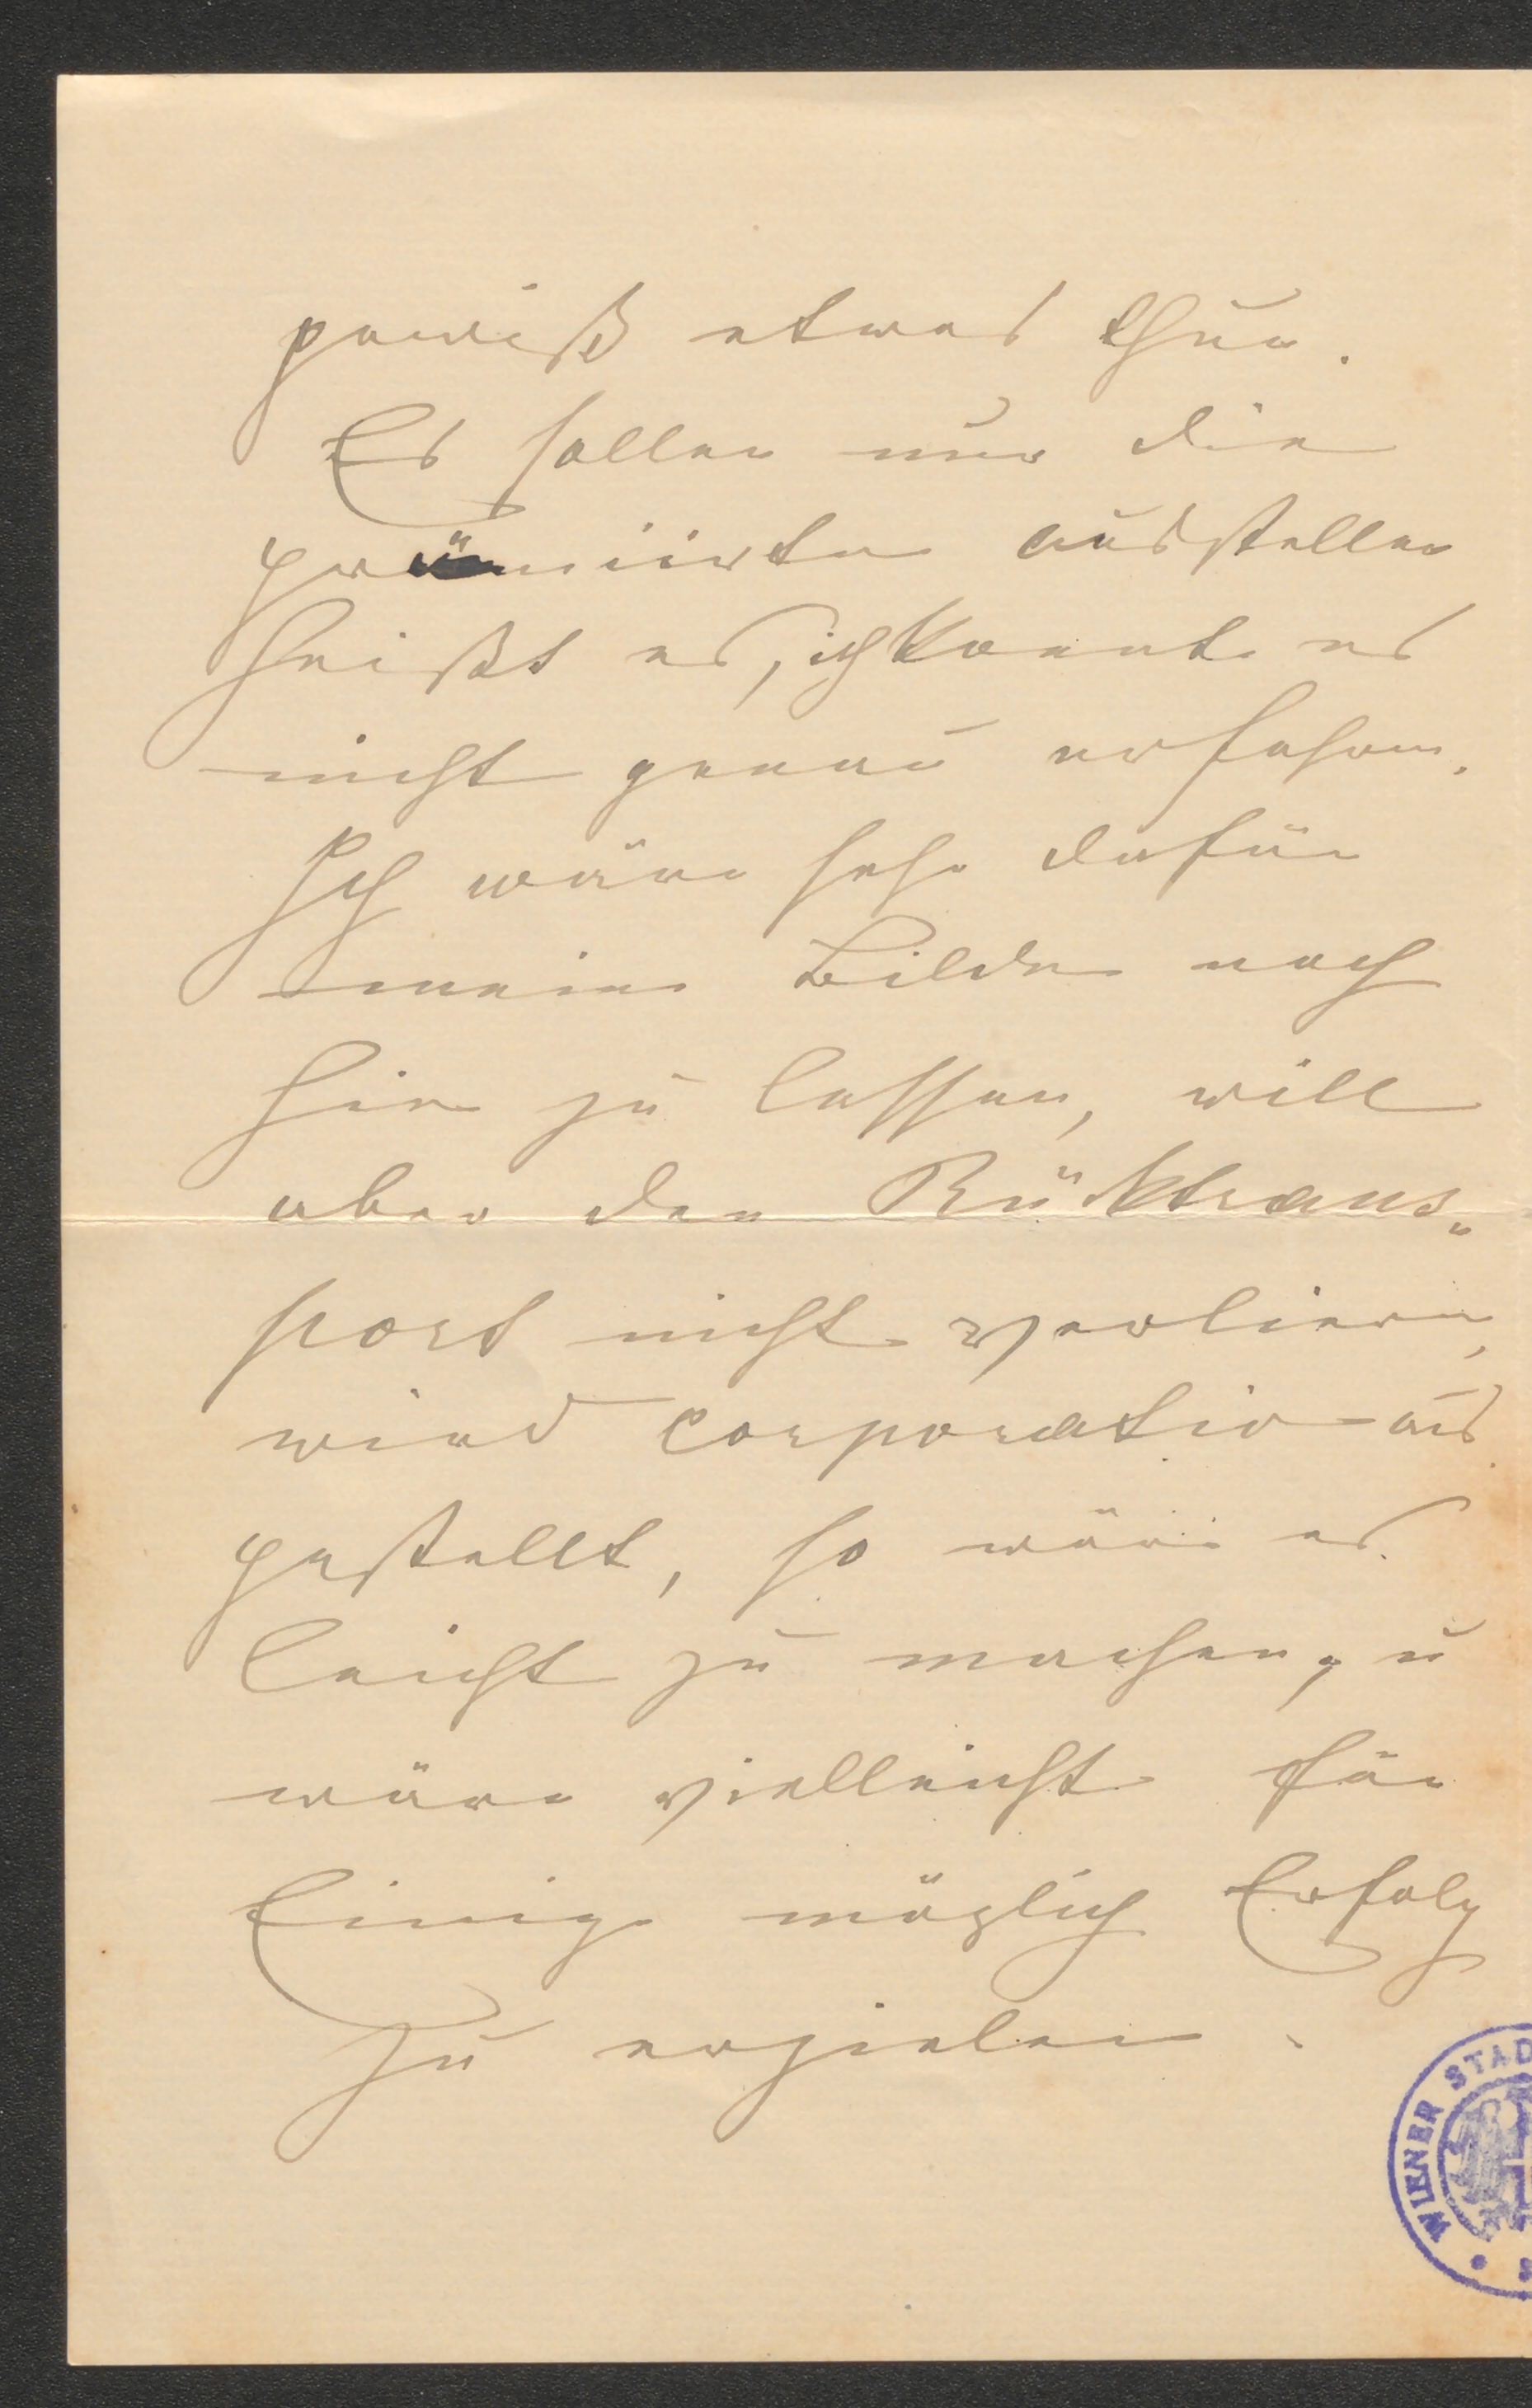 gewiß etwas thun.
Es sollen nur die
prämiirten ausstellen
heißt es, ich konnte es
nicht genau erfahren.
Ich wäre sehr dafür
meine Bilder noch
hier zu lassen, will
aber den Rücktrans„
port nicht verlieren,
wird corporativ aus
gestellt, so wäre es
leicht zu machen, u
wäre vielleicht für
Einige möglich Erfolg
zu erzielen.
WIENER STAD